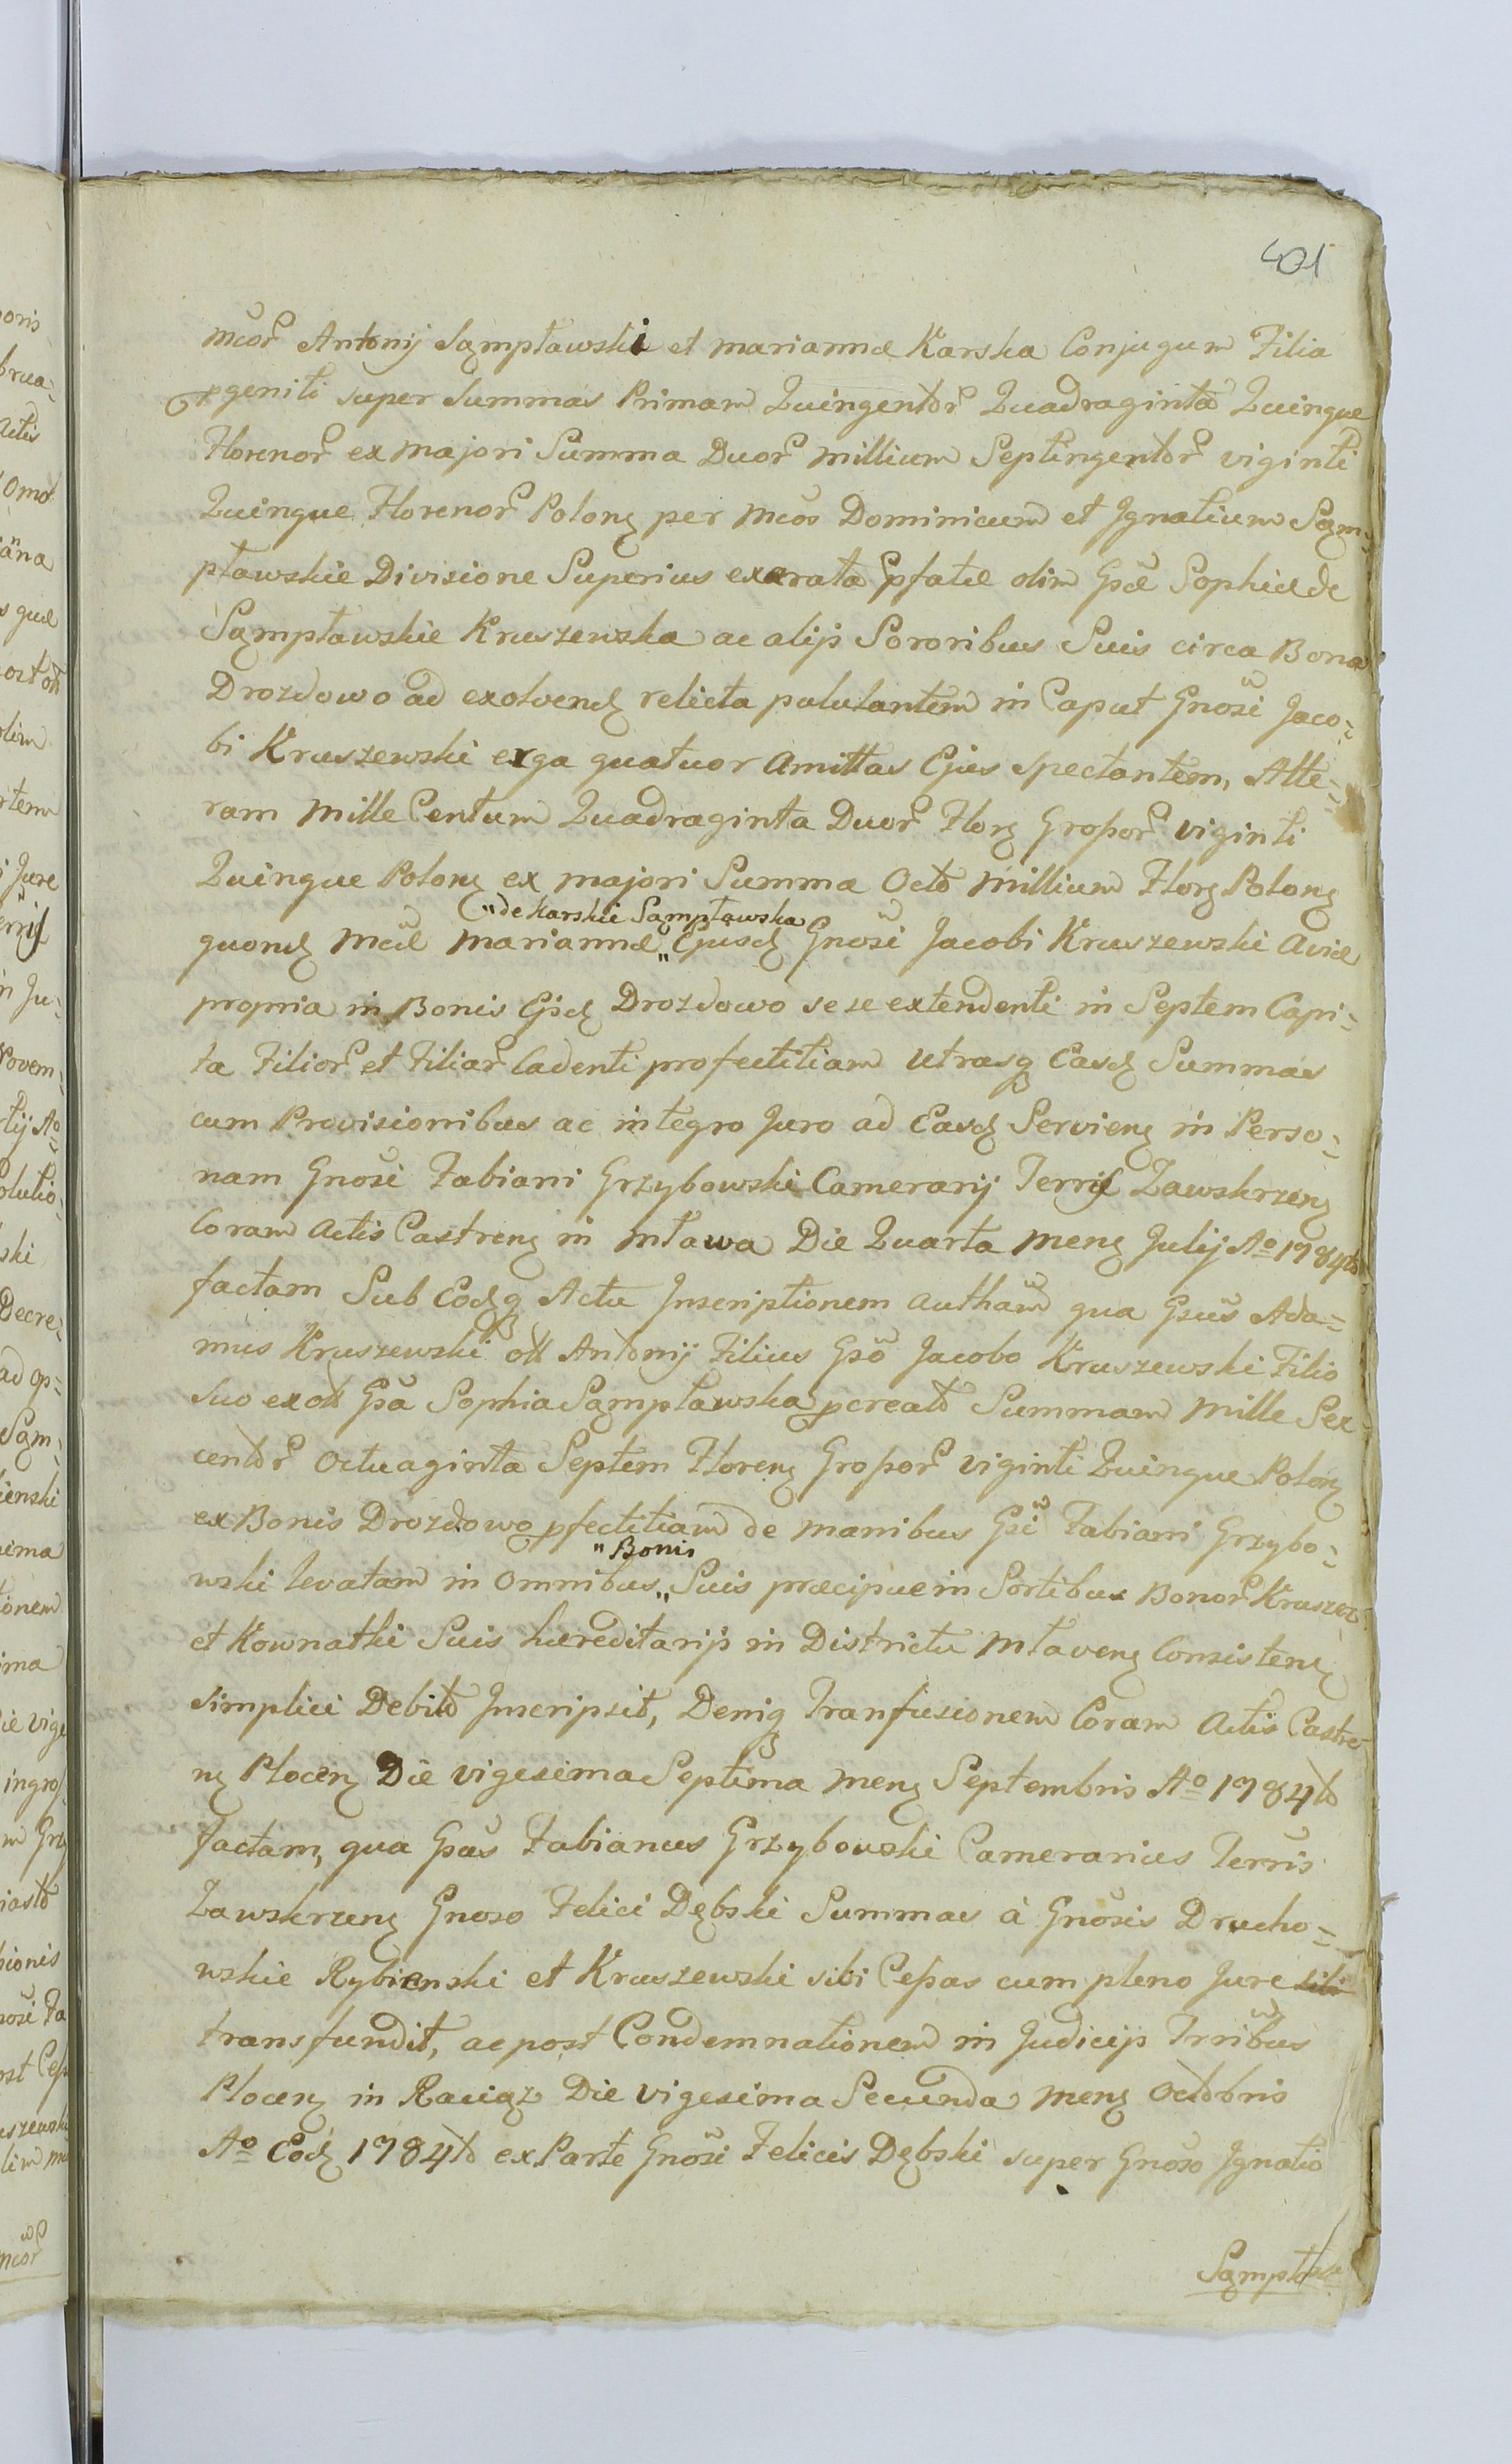 401
Mcor̃ Antonij Sąmpławski et Mariannæ Karska Conjugum Filia
pgeniti super Summas Primam Quingentor̃ Quadraginta Quinque
Florenor̃ ex majori Summa Duor̃ Millium Septingentor̃ viginti
Quinque Florenor̃ Polonʒ per Mcos Dominicum et Ignatium Sąm=
pławskie Divisione Superius exarata Pfatæ olim Gsæ Sophiæ de
Sąmpławskie Kruszewska ac alijs Sororibus Suis circa Bona
Drozdowo ad exolvendʒ relicta pululantem in Caput Gnosi Jaco=
bi Kruszewski erga quatuor Amittas Ejus spectantem, Alte=
ram Mille Centum Quadraginta Duor̃ Florʒ Grossor̃ viginti
Quinque Polonʒ ex majori Summa Octo Millium Florʒ Polonʒ
"de Karskie Sąmpławska
quondʒ Mcæ Mariannæ " Ejusdʒ Gnosi Jacobi Kruszewski Aviæ
propria in Bonis Ejsdʒ Drozdowo sese extendenti in Septem Capi=
ta Filior̃ et Filiar̃ Cadenti profectitiam utrasqʒ Easdʒ Summas
cum Provisionibus ac integro Juro ad Easdʒ Servienʒ in Perso=
nam Gnosi Fabiani Grzybowski Camerarij Terris Zawskrzenʒ
Coram Actis Castrenʒ in Mława Die Quarta Menʒ Julij Aº 1784to
factam Sub Eodʒqʒ Actu Inscriptionem Autham qua Gsus Ada=
mus Kruszewski olł Antonij Filius Gso Jacobo Kruszewski Filio
Suo ex olł Gsa Sophia Sąmpławska pcreato Summam Mille Sex
centor̃ Octuaginta Septem Florenʒ Grossor̃ viginti Quinque Polonʒ
ex Bonis Drozdowo pfectitiam de manibus Gsi Fabiani Grzybo=
"Bonis
wski levatam in Omnibus " Suis præcipue in Sortibus Bonor̃ Kruszew
et Kownatki Suis hæreditarijs in Districtu Mlavenʒ Consistenʒ
simplici Debito Inscripsit, Deniqʒ Tranfusionem Coram Actis Castre
nʒ Plocenʒ Die vigesima Septima Menʒ Septembris Aº 1784to
factam, qua Gsus Fabianus Grzybowski Camerarius Terris
Zawskrzenʒ Gnoso Felici Dębski Summas à Gnosis Drucho=
wskie Rybienski et Kruszewski sibi Cessas cum pleno Jure
transfundit, ac post Condemnationem in Judicijs Trribus
Plocenʒ in Raciąz Die vigesima Secunda Menʒ Octobris
Aº Eodʒ 1784to ex Parte Gnosi Felicis Dębski super Gnoso Ignatio